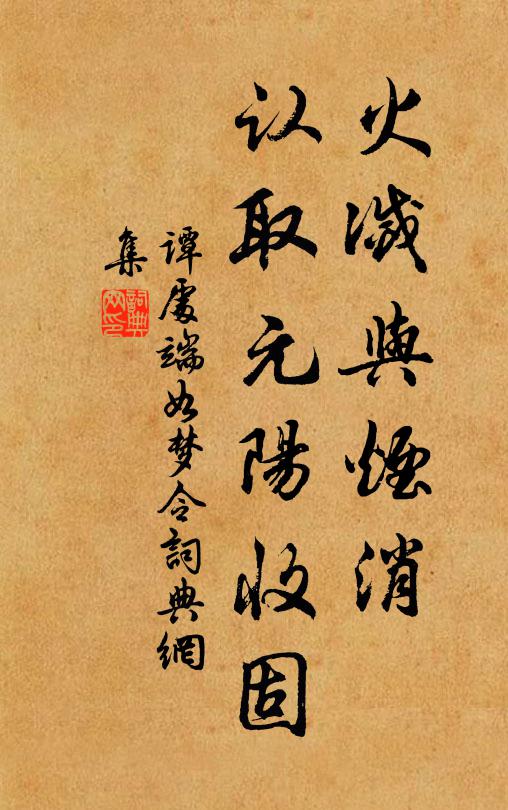 火滅與煙消
认取元陽收固
谭處端如梦令詞典網
集
詞典網印